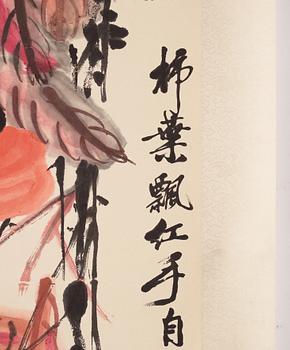 柿葉飄紅手自